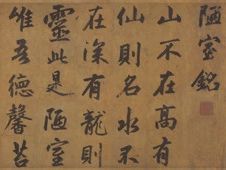 陋室銘
山不在高有
仙則名水不
在深有龍則
靈此是陋室
唯吾德馨苔